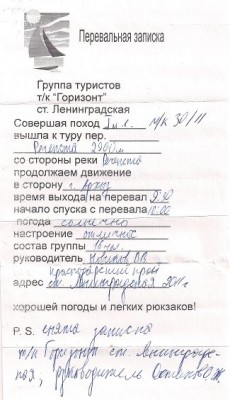 Перевальная записка
Группа туристов
т/к "Горизонт"
ст. Ленинградская
Совершая поход I к.с. м/к 30/11
вышла к туру пер.
2900 м
со стороны реки
продолжаем движение
в сторону г. Архыз
время выхода на перевал
начало спуска с перевала 12.00
погода солнечно
настроение отличное
состав группы 10 чел.
руководитель
Краснодарский край
адрес ст. Ленинградская 2011г
хорошей погоды и легких рюкзаков!
P.S. снята записка
т/к Горизонт ст. Ленинградс-
кая, руководитель